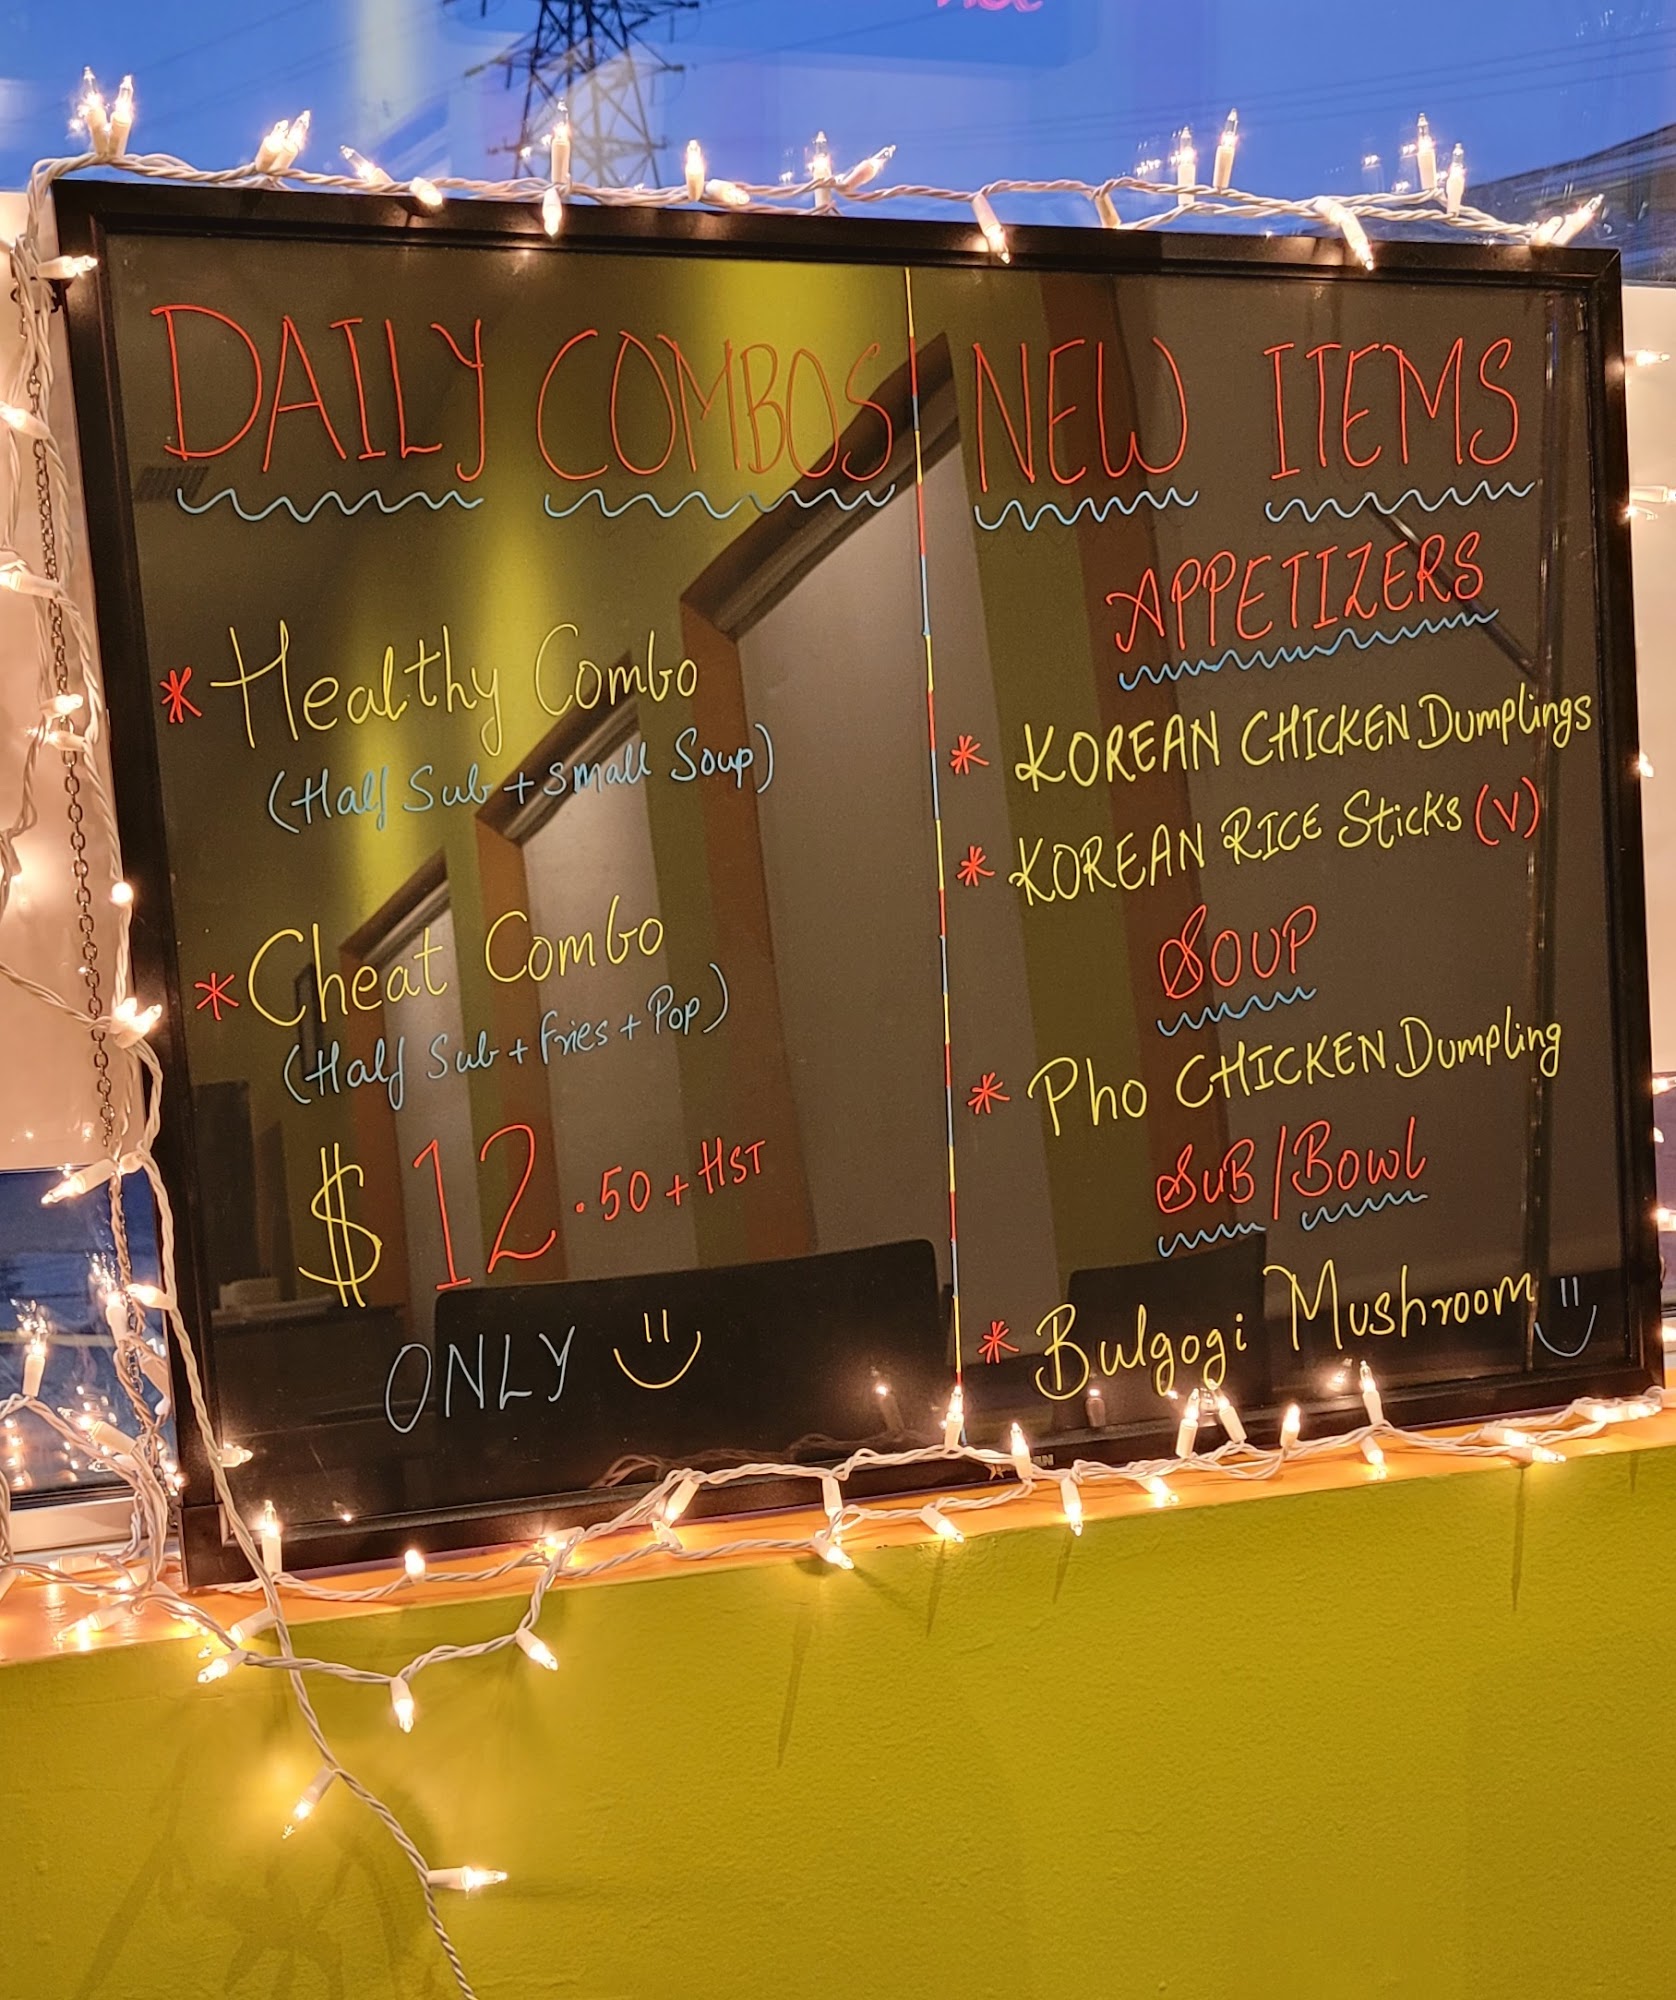 DAILY COMBOS
* Healthy Combo
(Half Sub + small Soup)
* Cheat Combo
(Half Sub + fries + Pop)
$12.50 + HST
ONLY
NEW ITEMS
APPETIZERS
* KOREAN CHICKEN Dumplings
* KOREAN RICE Sticks (V)
SOUP
* Pho CHICKEN Dumpling
SUB/BOWL
* Bulgogi Mushroom